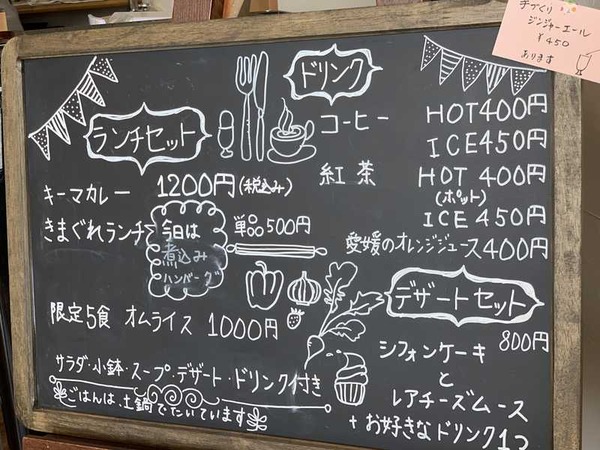 手づくり
ジンジャーエール
¥450
あります
ランチセット
キーマカレー 1200円(税込み)
きまぐれランチ
今日は
煮込み
ハンバーグ
単品500円
限定5食 オムライス 1000円
サラダ・小鉢・スープ・デザート・ドリンク付き
ごはんは、土鍋でたいています
ドリンク
コーヒー HOT400円
ICE450円
紅茶 HOT 400円
(ポット)
ICE 450円
愛媛のオレンジジュース400円
デザートセット
800円
シフォンケーキ
と
レアチーズムース
+お好きなドリンク1つ